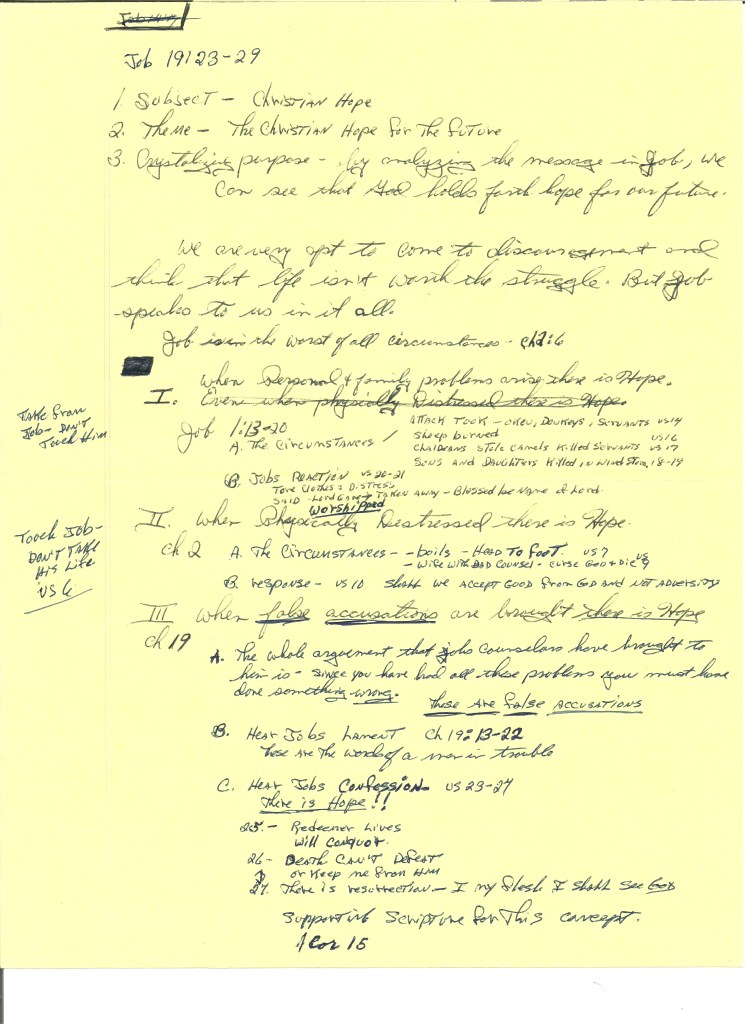 Job 19:23-29
1. Subject - Christian Hope
2. Theme - The Christian Hope for The Future
3. Crystalizing purpose - by analyzing the message in Job, we
can see that God holds forth hope for our future.
We are very apt to come to discouragement and
think that life isn't worth the struggle. But Job
speaks to us in it all.
Job is in the worst of all circumstances - ch 2:6
When Personal & family problems arise there is Hope.
I. Even when physically Distressed there is Hope.
Take from
Job - Don't
Touch Him
Job 1:13-20
A. The Circumstances /
Attack Took - oxen, Donkeys, Servants vs 14
Sheep burned vs 16
Chaldeans stole camels Killed Servants vs 17
Sons and Daughters Killed in Wind Storm, 18-19
B. Jobs Reaction vs 20-21
Tore Clothes = Distress
Said - Lord Gave & Taken away - Blessed be Name of Lord.
Worshipped
II. When Physically Distressed there is Hope.
Touch Job -
Don't Take
His Life
vs 6
ch 2 A. The Circumstances - - boils - Head To Foot. vs 7
- Wife with Bad Counsel - curse God & Die vs 9
B. response - vs 10 shall we accept Good from God and not adversity
III When false accusations are brought there is Hope
ch 19
A. The whole argument that Jobs Counselors have brought to
him is - since you have had all these problems you must have
done something wrong. These are false accusations
B. Hear Jobs Lament Ch 19:13-22
These are the words of a man in trouble
C. Hear Jobs Confession - vs 23-27
There is Hope!!
25. - Redeemer Lives
Will conquor.
26 - Death Can't Defeat
or Keep me from Him
27. There is resurrection - I my flesh I shall see God
Supporting Scripture for This concept.
1 Cor 15